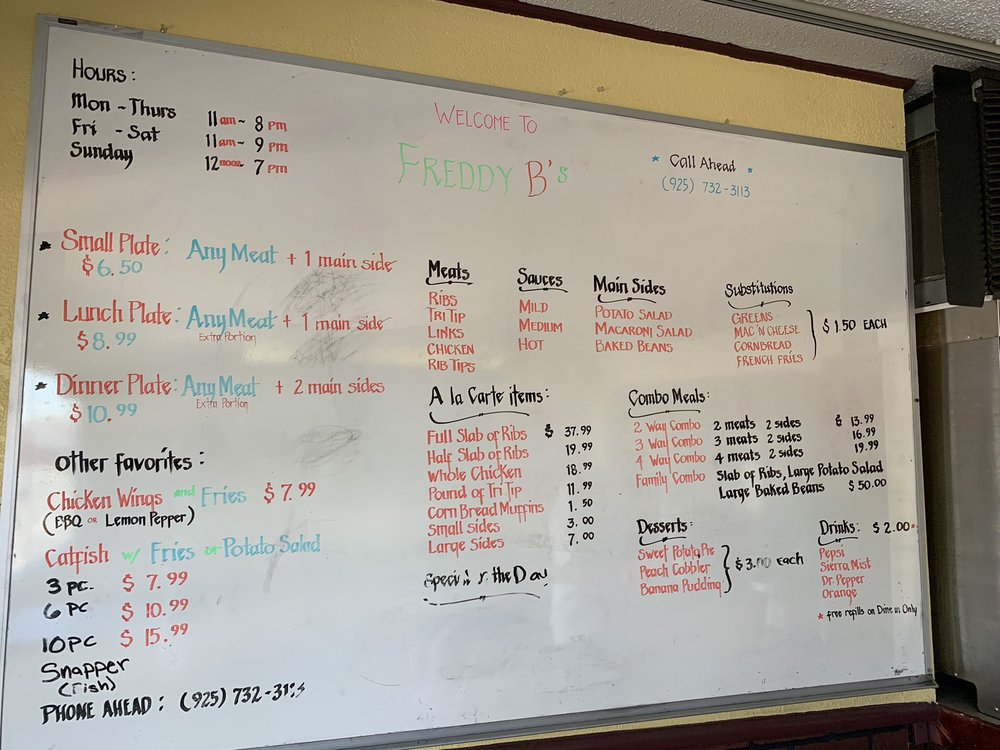 HOURS:
Mon - Thurs 11am - 8 pm
Fri - Sat 11am - 9 pm
Sunday 12noon - 7 pm
WELCOME TO
FREDDY B's
* Call Ahead *
(925) 732-3113
* Small Plate: Any Meat + 1 main side
$6.50
* Lunch Plate: Any Meat + 1 main side
$8.99 Extra Portion
* Dinner Plate: Any Meat + 2 main sides
$10.99 Extra Portion
Other favorites:
Chicken Wings and Fries $7.99
(BBQ OR Lemon Pepper)
Catfish w/ Fries or Potato Salad
3 PC. $7.99
6 PC $10.99
10 PC $15.99
Snapper
(Fish)
PHONE AHEAD: (925) 732-3113
Meats
RIBS
TRI TIP
LINKS
CHICKEN
RIB TIPS
Sauces
MILD
MEDIUM
HOT
Main Sides
POTATO SALAD
MACARONI SALAD
BAKED BEANS
Substitutions
GREENS
MAC 'N CHEESE
CORNBREAD
FRENCH FRIES
$1.50 EACH
A la Carte items:
Full Slab of Ribs $37.99
Half Slab of Ribs 19.99
Whole Chicken 18.99
Pound of Tri Tip 11.99
Corn Bread Muffins 1.50
Small sides 3.00
Large Sides 7.00
Special of the Day
Combo Meals:
2 Way Combo 2 meats 2 sides $13.99
3 Way Combo 3 meats 2 sides 16.99
4 Way Combo 4 meats 2 sides 19.99
Family Combo Slab of Ribs, Large Potato Salad
Large Baked Beans $50.00
Desserts:
Sweet Potato Pie
Peach Cobbler
Banana Pudding
$3.00 each
Drinks: $2.00*
Pepsi
Sierra Mist
Dr. Pepper
Orange
* free refills on Dine in Only